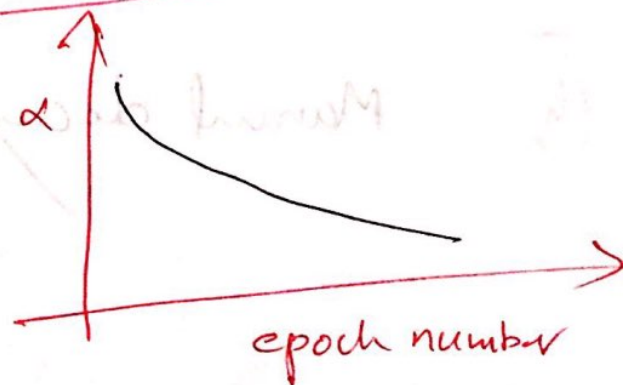 α
epoch number